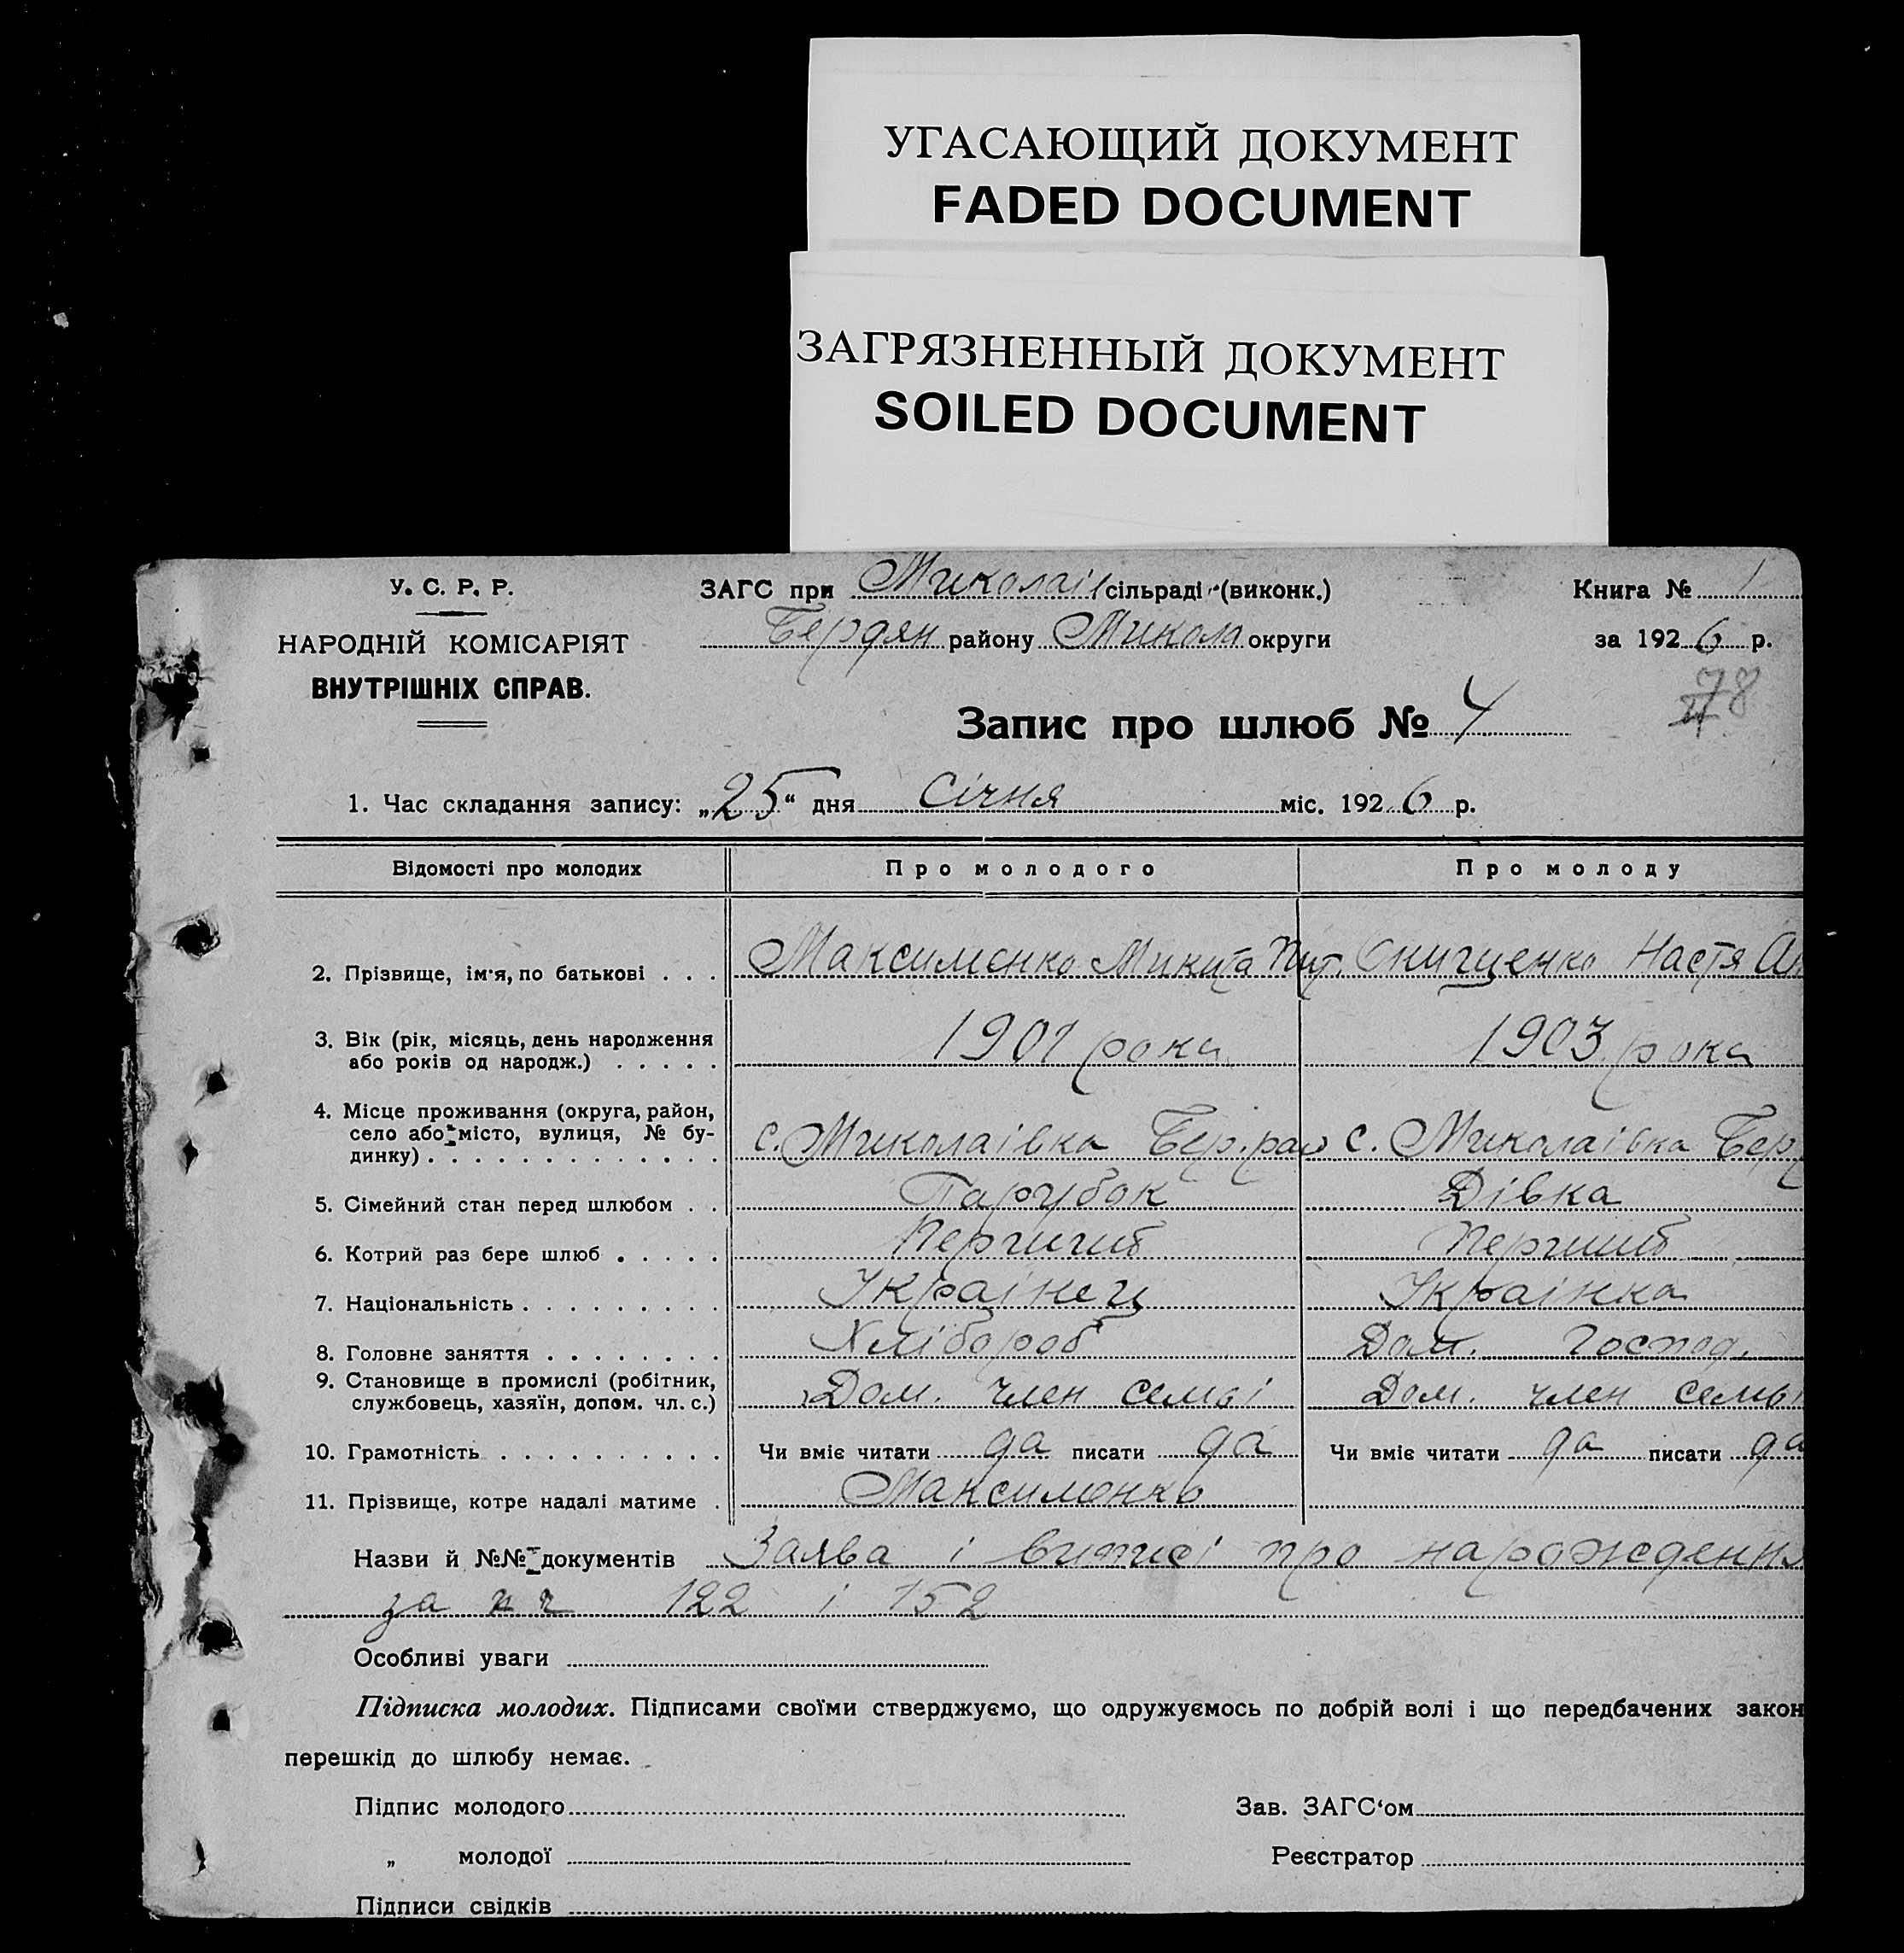 УГАСАЮЩИЙ ДОКУМЕНТ
FADED DOCUMENT
ЗАГРЯЗНЕННЫЙ ДОКУМЕНТ
SOILED DOCUMENT
У. С. Р. Р.
НАРОДНІЙ КОМІСАРІЯТ
ВНУТРІШНІХ СПРАВ.
ЗАГС при Миколаїв сільраді (виконк.)
Бердян району Микола округи
Книга № 1
за 1926 р.
78
Запис про шлюб № 4
1. Час складання запису: „25“ дня Січня міс. 1926 р.
Відомості про молодих Про молодого Про молоду
2. Прізвище, ім'я, по батькові . . . Максименко Микита Настя
3. Вік (рік, місяць, день народження
або років од народж.) . . . . . 1901 рока 1903 рока
4. Місце проживання (округа, район,
село або місто, вулиця, № бу-
динку) . . . . . . . . . . . . . . с. Миколаівка Бер. рай с. Миколаівка Бер
5. Сімейний стан перед шлюбом . . Парубок Дівка
6. Котрий раз бере шлюб . . . . . Перший Перший
7. Національність . . . . . . . . . Украінец Украінка
8. Головне заняття . . . . . . . . Хлібороб Дом. Господ.
9. Становище в промислі (робітник,
службовець, хазяїн, допом. чл. с.) Дом. член семьі Дом. член семьі
10. Грамотність . . . . . . . . . . Чи вміє читати да писати да Чи вміє читати да писати да
11. Прізвище, котре надалі матиме . Максимонко
Назви й №№ документів Заява і виписі про нарождення
за 122 і 152
Особливі уваги
Підписка молодих. Підписами своїми стверджуємо, що одружуємось по добрій волі і що передбачених закон
перешкід до шлюбу немає.
Підпис молодого Зав. ЗАГС‘ом
„ молодої Реєстратор
Підписи свідків